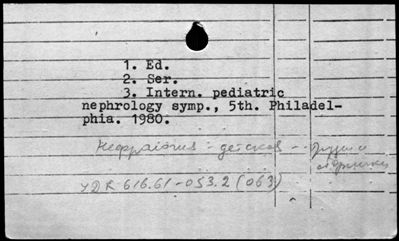 1. Ed.
2. Ser.
3. Intern. pediatric
nephrology symp., 5th. Philadel-
phia. 1980.
детская -
УДК 616.61-053.2(063)